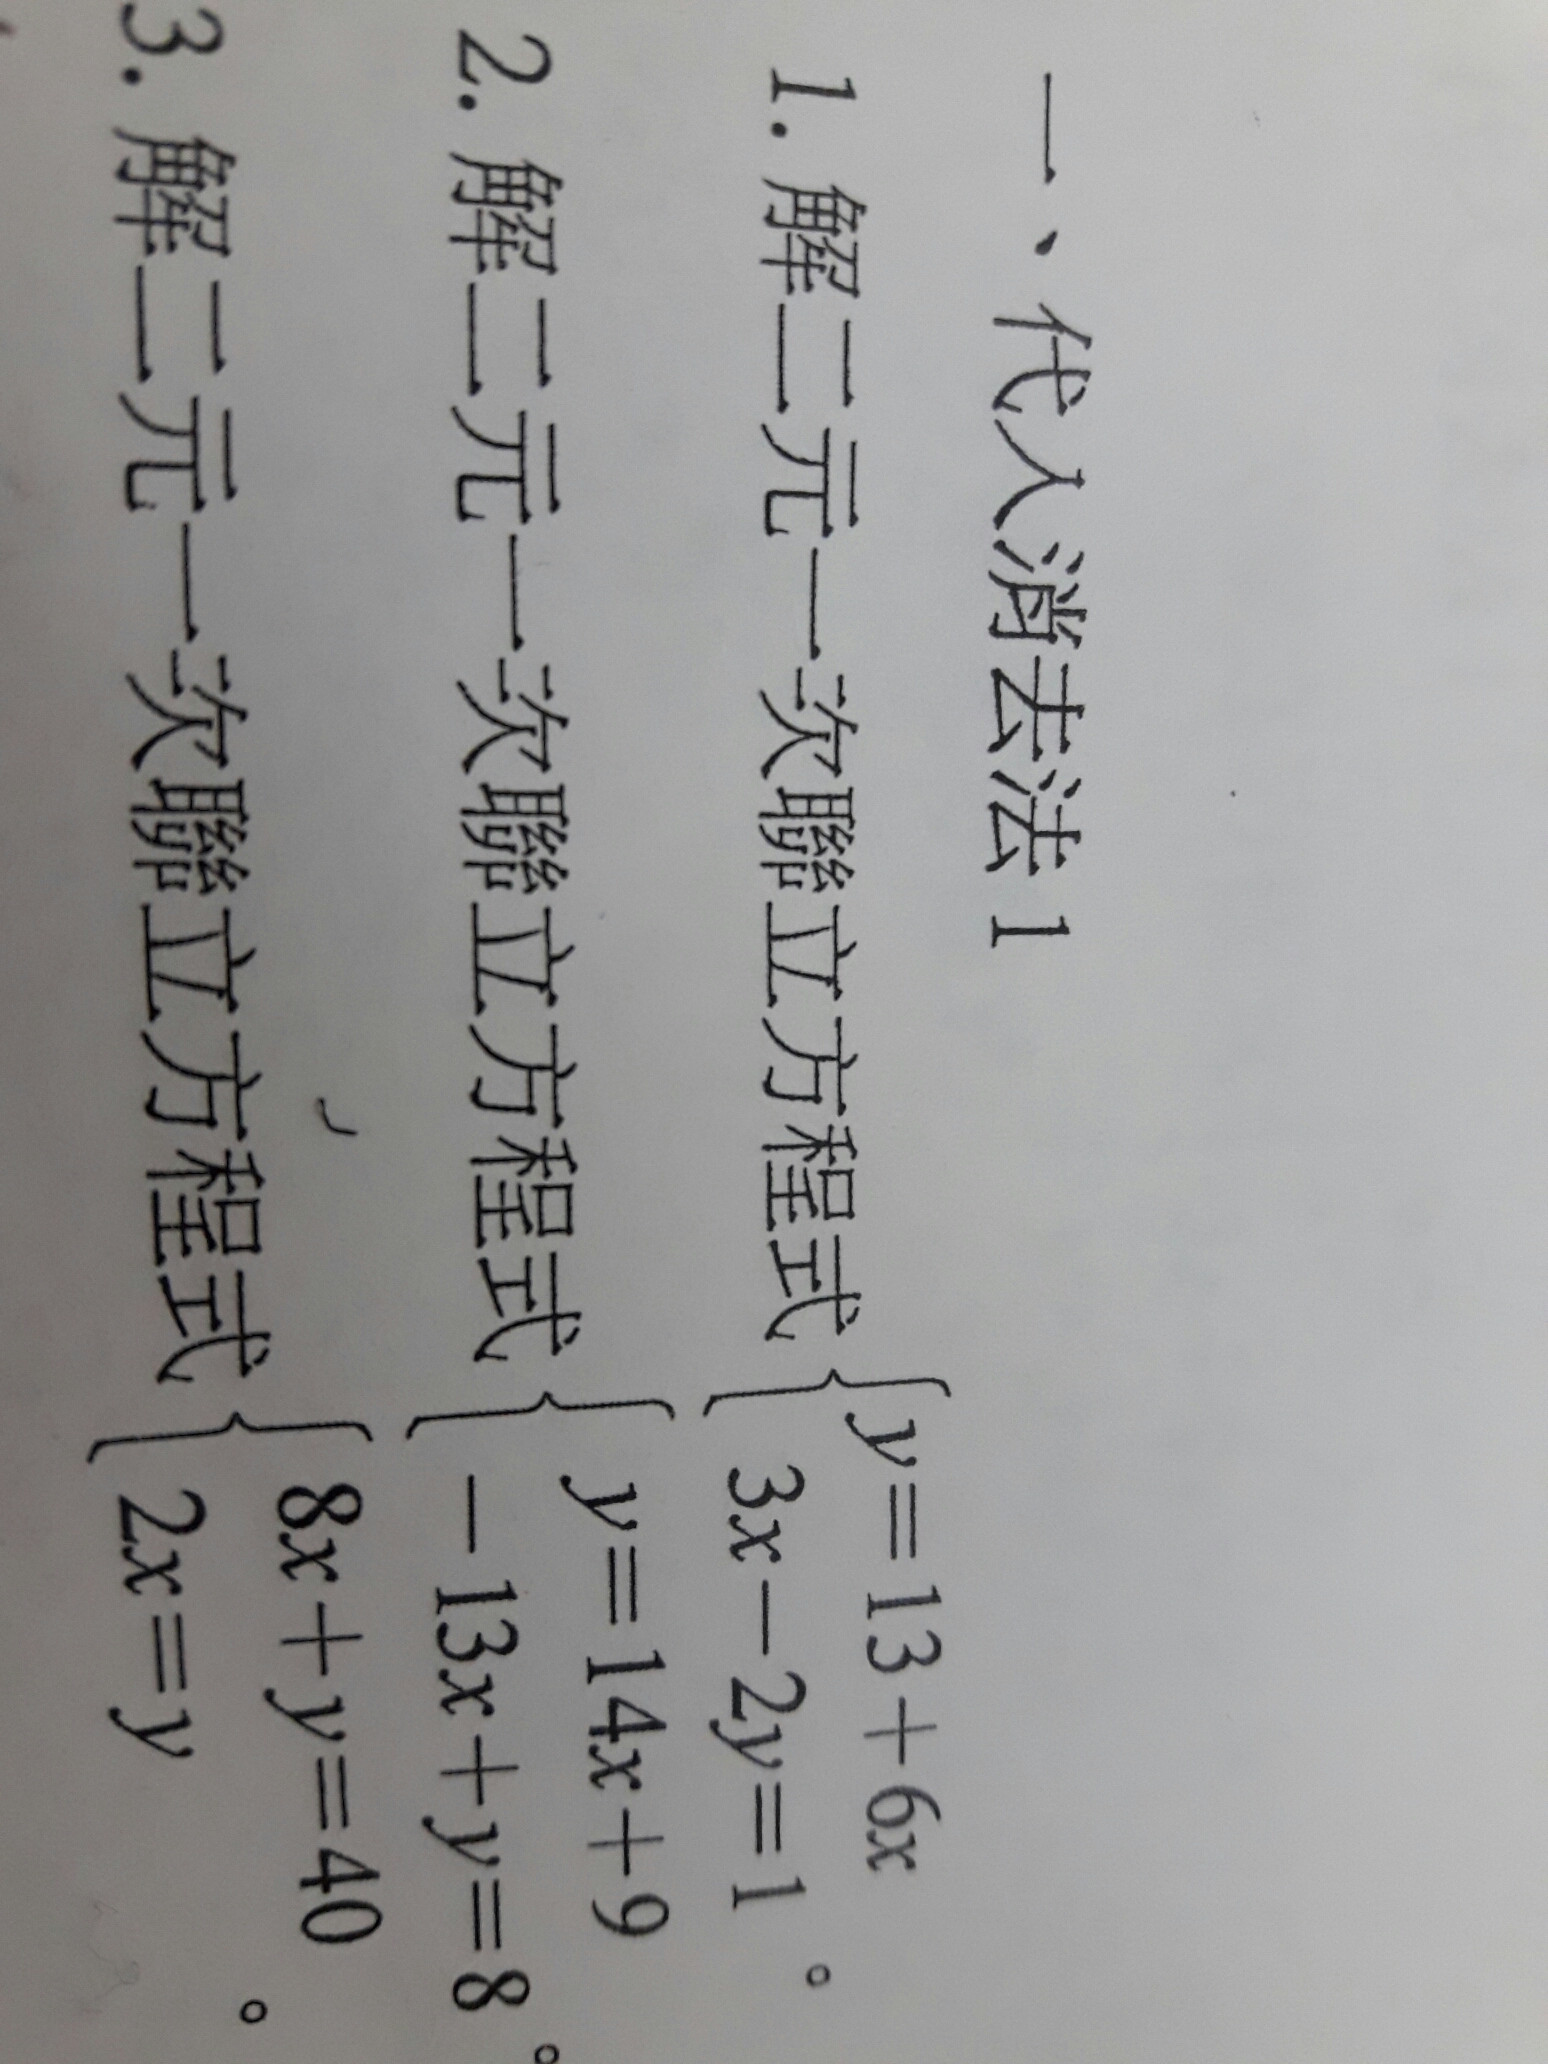 一、代入消去法 1
1. 解二元一次聯立方程式 { y=13+6x
3x－2y=1 。
2. 解二元一次聯立方程式 { y=14x+9
－13x+y=8 。
3. 解二元一次聯立方程式 { 8x+y=40
2x=y 。